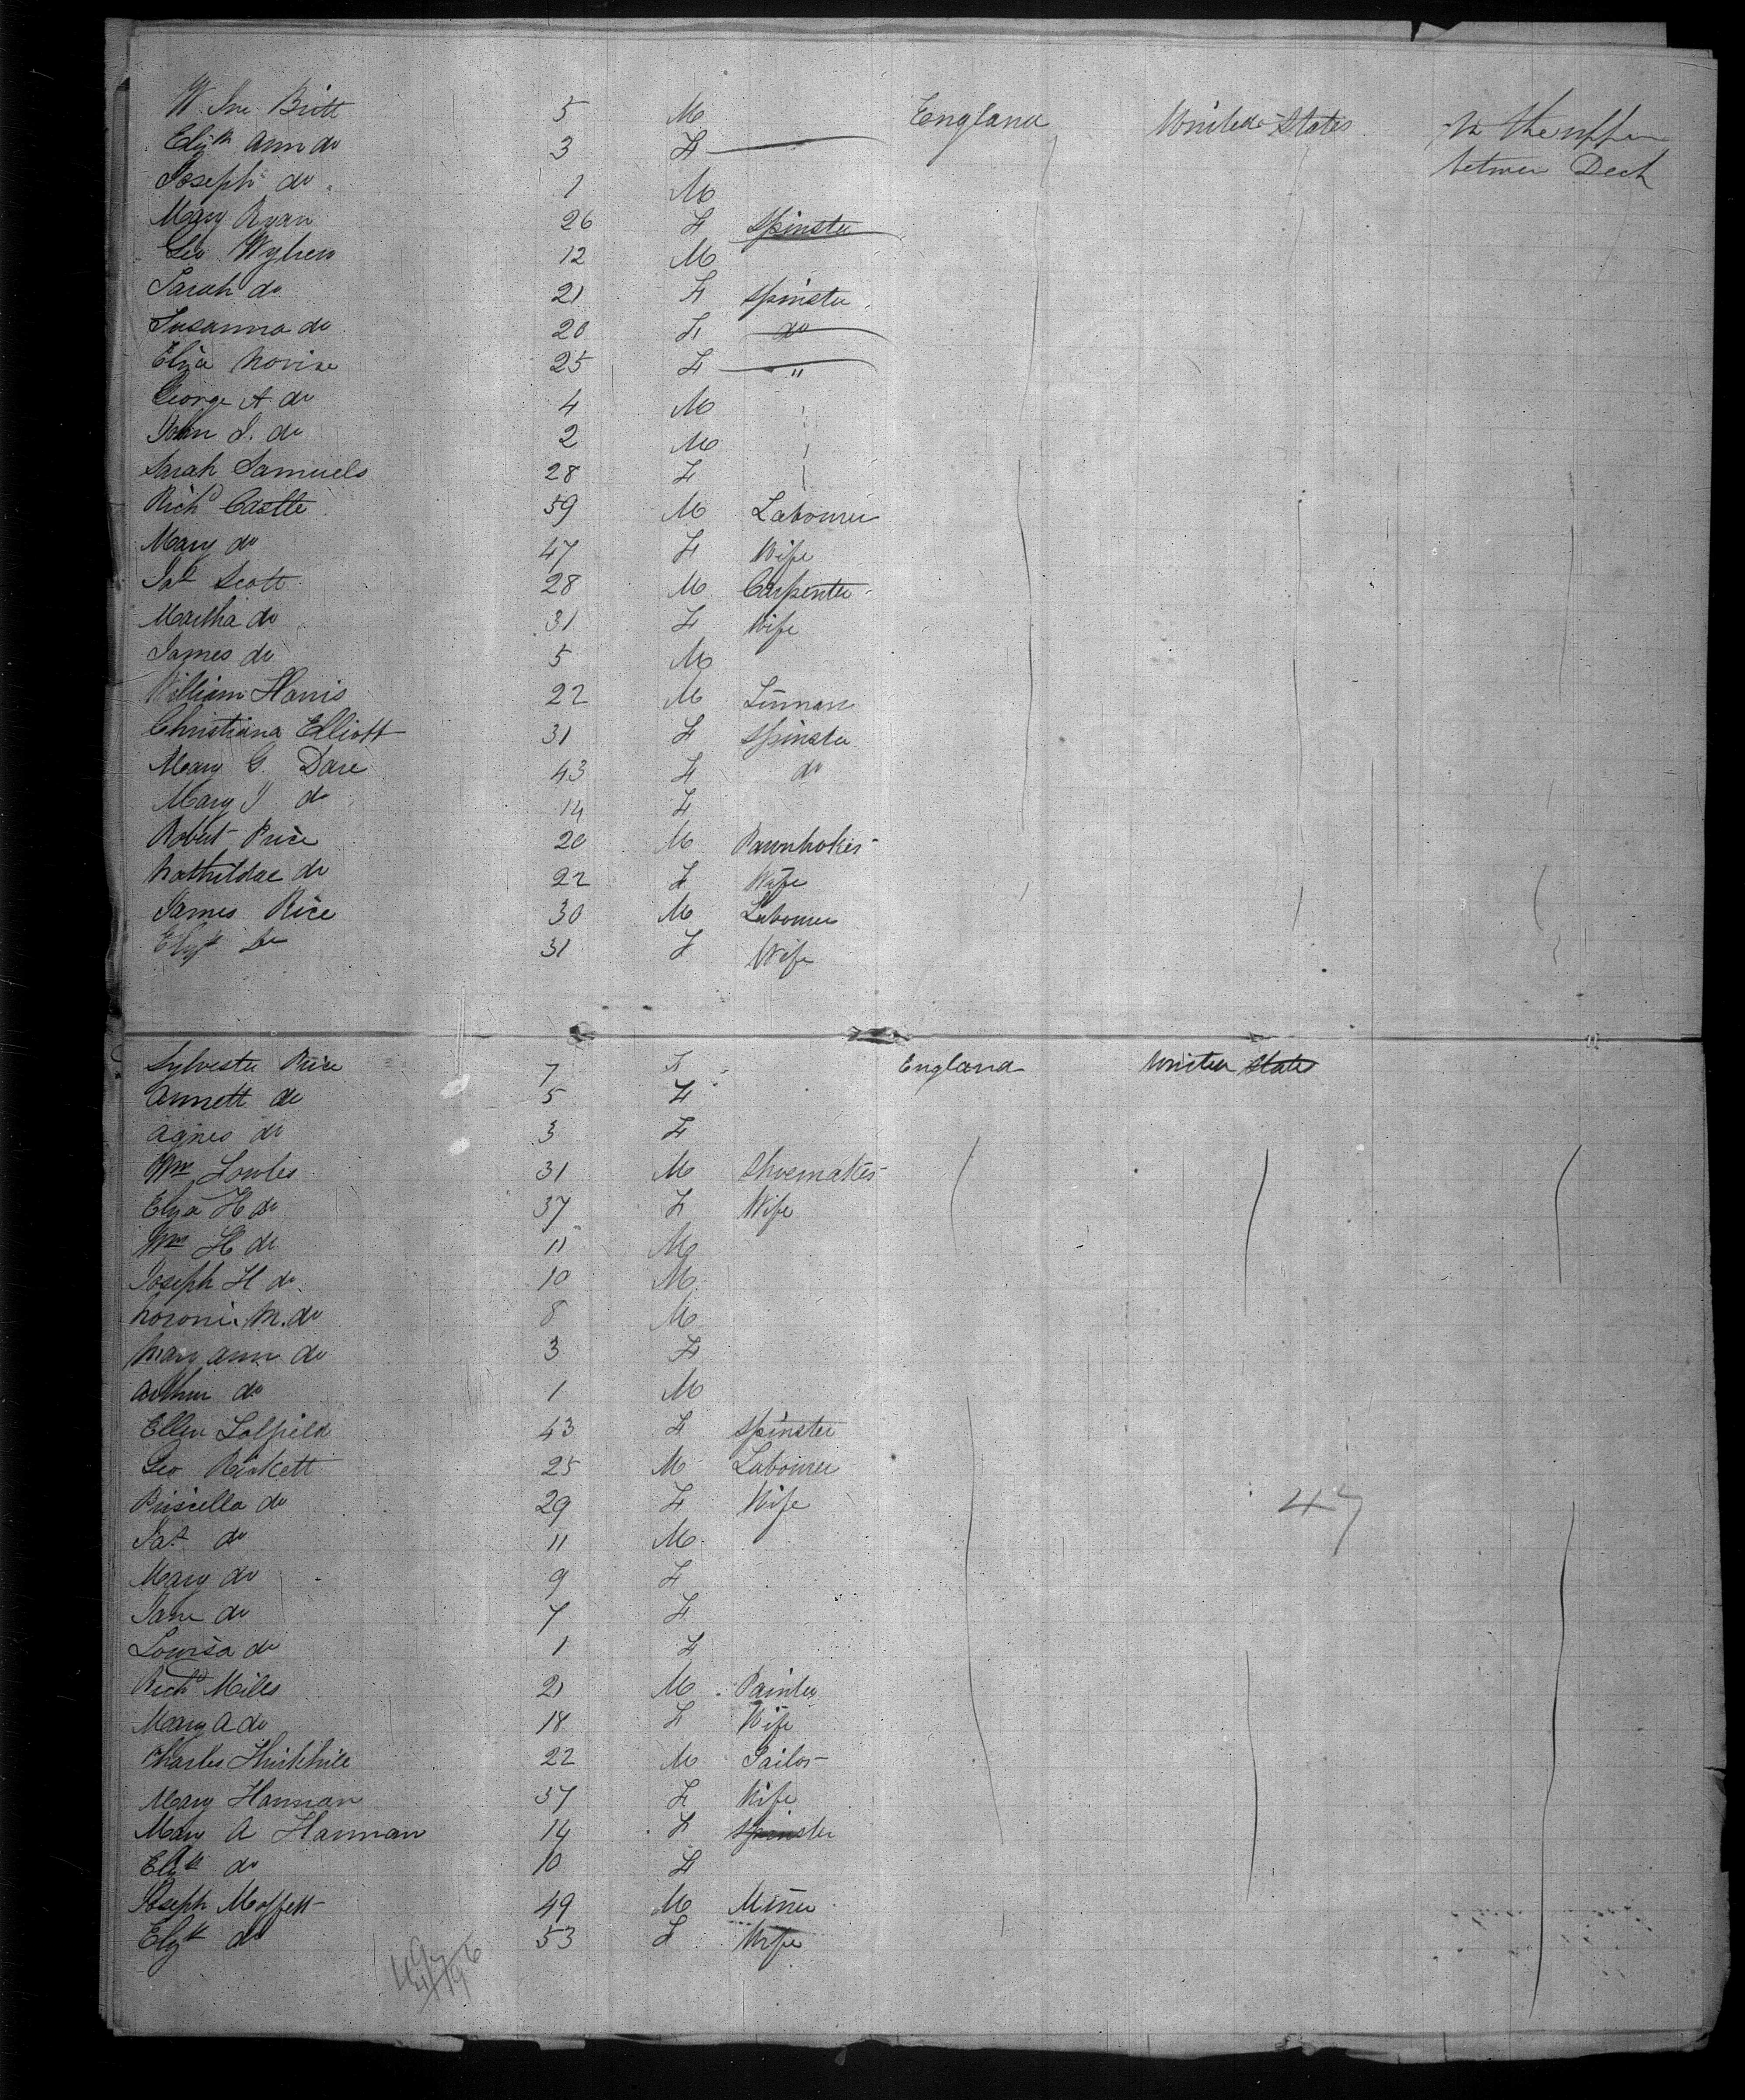 W. Jno. Britt 5 M England United States In the upper
Elizth Ann do 3 F between Deck
Joseph do 1 M
Mary Ryan 26 F Spinster
Geo 12 M
Sarah do 21 F Spinster
Susanna do 20 F do
Eliza 25 F "
George A. do 4 M
John J. do 2 M
Sarah Samuels 28 F
Richd Castle 59 M Labourer
Mary do 47 F Wife
Jas Scott 28 M Carpenter
Martha do 31 F Wife
James do 5 M
William Harris 22 M
Christiana Elliott 31 F Spinster
Mary G. Dare 43 F do
Mary J do 14 F
Robert Price 20 M
do 22 F Wife
James Rice 30 M Labourer
Elizth Do 31 F Wife
Sylvester Rice 7 F England United States
Annett do 5 F
Agnes do 3 F
Wm Fowles 31 M Shoemaker
Eliza H do 37 F Wife
Wm H do 11 M
Joseph H do 10 M
M. do 8 M
Mary Ann do 3 F
Arthur do 1 M
Ellen 43 F Spinster
Geo Rickett 25 M Labourer
Priscilla do 29 F Wife 47
Jas do 11 M
Mary do 9 F
Jane do 7 F
Louisa do 1 F
Richd Miles 21 M Painter
Mary A do 18 F Wife
Charles 22 M Tailor
Mary Hannan 37 F Wife
Mary A Hannan 14 F Spinster
Elizth do 10 F
Joseph Moffett 49 M Miner
Elizth do 53 F Wife